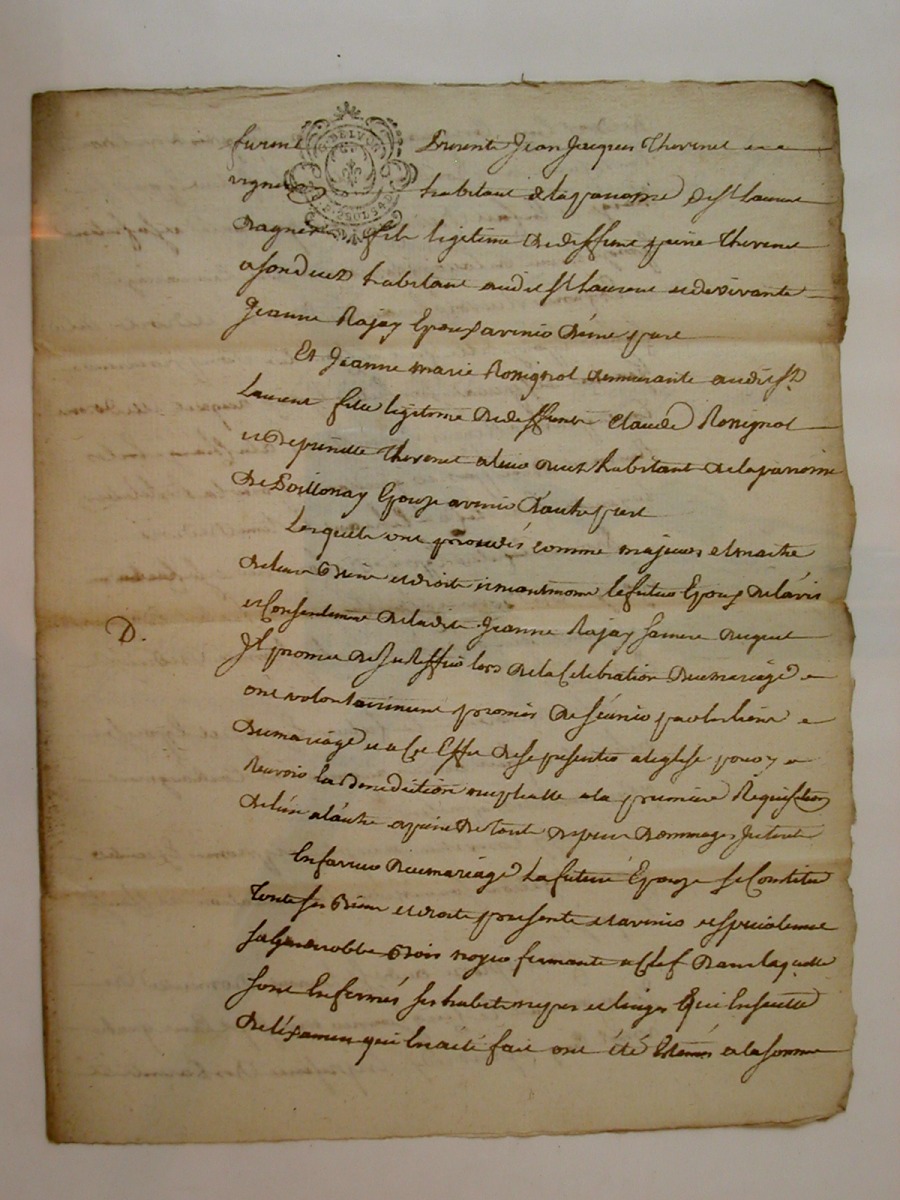 furent Presents Jean Jacques Thevenet
vigneron habitant de la parroisse de St Laurent
Dagneins fils legitime de deffunt pierre Thevenet
a son deces habitant audit St Laurent et de vivante
Jeanne Rajay Epoux avenir d'une part
Et Jeanne marie Rossignol demeurante audit St
Laurent fille legitime de deffunts Claude Rossignol
et de Thevenet a leur deces habitant de la parroisse
De Poillonay Epouse avenir d'autre part
Lesquels ont procedés comme majeurs et maitre
de leurs Biens et droits neantmoins le futur Epoux de lavis
et Consentement de ladite Jeanne Rajay sa mere duquel
D.
Il promet de justiffier lors de la Celebration du mariage
ont volontairement promis de se unir par les liens
du mariage et a Cet Effet de se presenter a leglise pour y
recevoir la Benediction nuptialle a la premiere Requisition
de l'un a l'autre a peine de tout depens dommages Interets
En faveur du mariage La future Epouse se Constitue
Tous ses Biens et droits presents et avenir et specialement
sa garderobbe Bois noyer fermante a Clef dans laquelle
sont Enfermés ses habits nippes et linges Qui Ensuitte
de l'examen qui En a été fait ont été Estimés a la somme
G. BELVUE